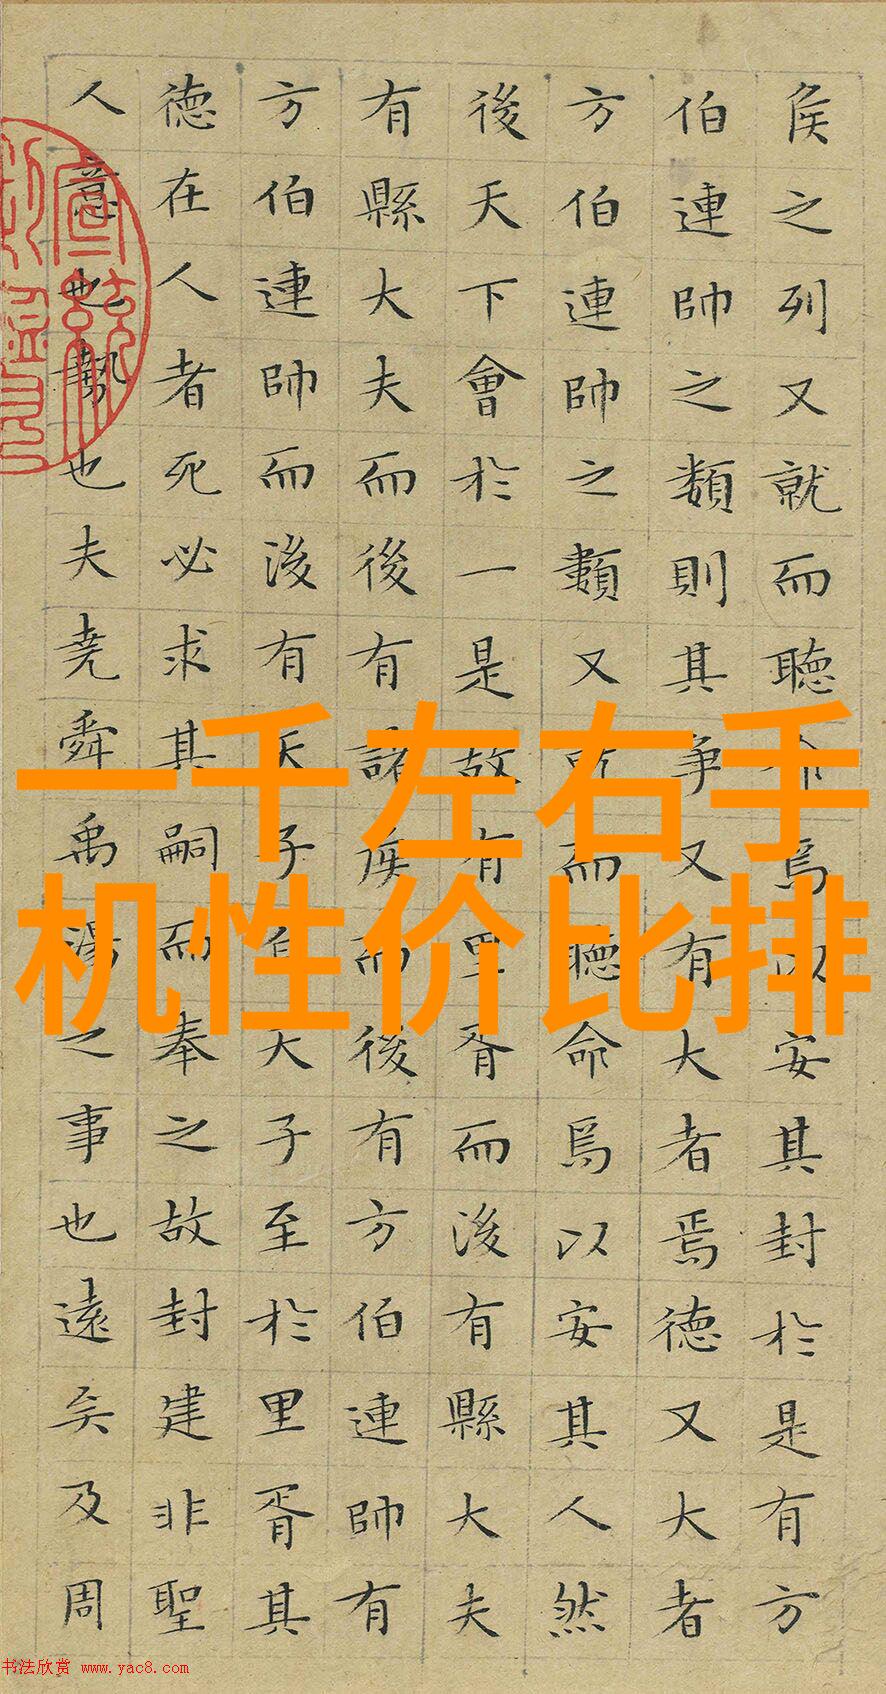 侯之列又就而聽命焉以安其封於是有方
伯連帥之類則其爭又有大者焉德又大者
方伯連帥之類又而聽命焉以安其人然
後天下會於一是故有里胥而後有縣大夫
有縣大夫而後有諸侯而後有方伯連帥有
方伯連帥而後有天子自天子至於里胥其
德在人者死必求其嗣而奉之故封建非聖
人意也勢也夫堯舜禹湯之事也遠矣及周
一千左右手
机性价比排
书法欣赏 www.yac8.com